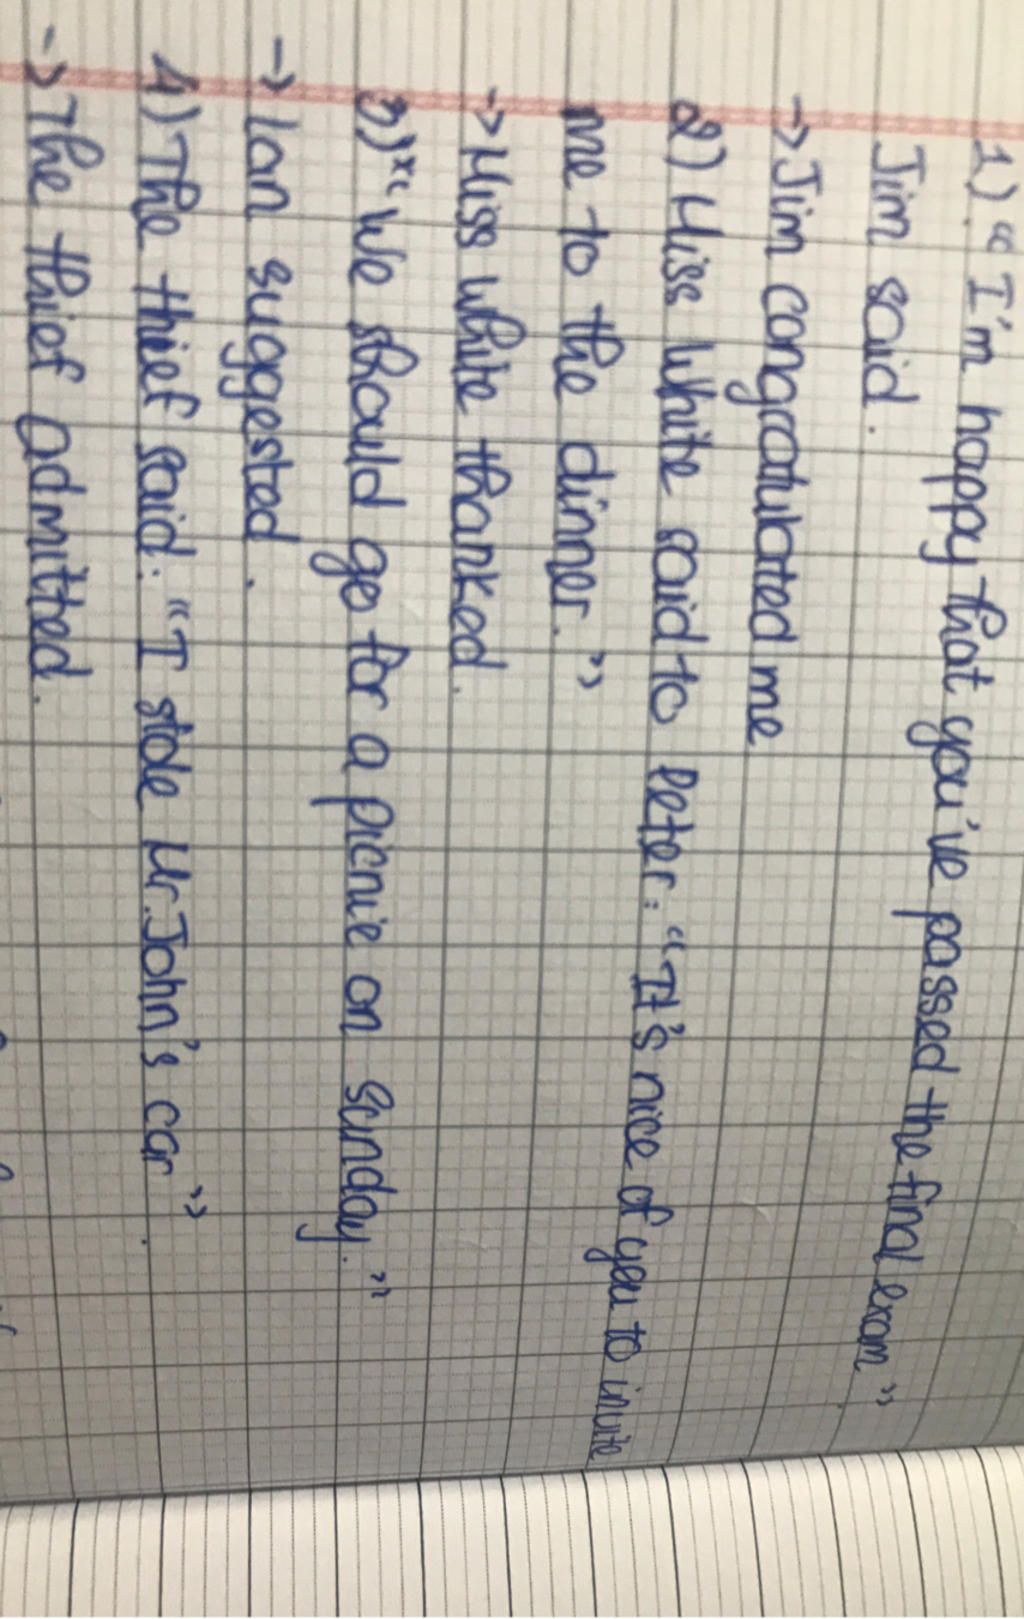 1) "I'm happy that you've passed the final exam"
Jim said.
-> Jim congratulated me
2) Miss White said to Peter: "It's nice of you to invite
me to the dinner."
-> Miss White thanked.
3) "We should go for a picnic on Sunday."
-> Ian suggested.
4) The thief said: "I stole Mr. John's car".
-> The thief admitted.